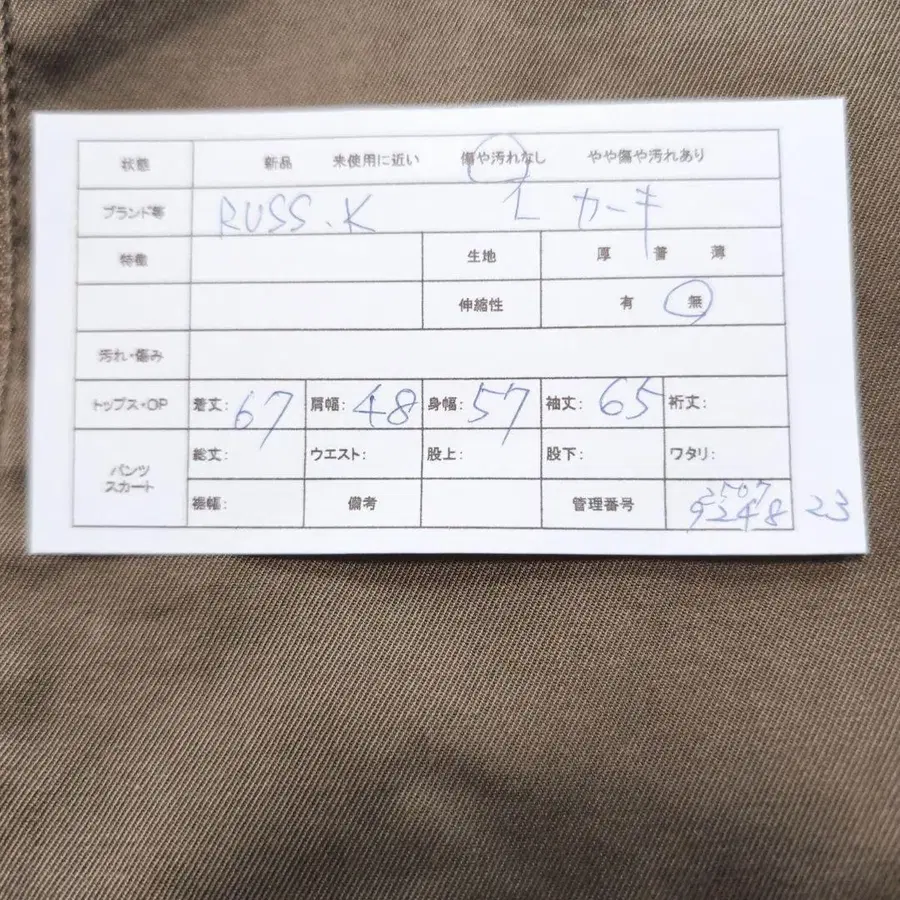 状態 新品 未使用に近い 傷や汚れなし やや傷や汚れあり
ブランド等 RUSS.K L カーキ
特徴 生地 厚 普 薄
伸縮性 有 無
汚れ・傷み
トップス・OP 着丈: 67 肩幅: 48 身幅: 57 袖丈: 65 裄丈:
パンツ スカート 総丈: ウエスト: 股上: 股下: ワタリ:
裾幅: 備考 管理番号 2507
9248 23